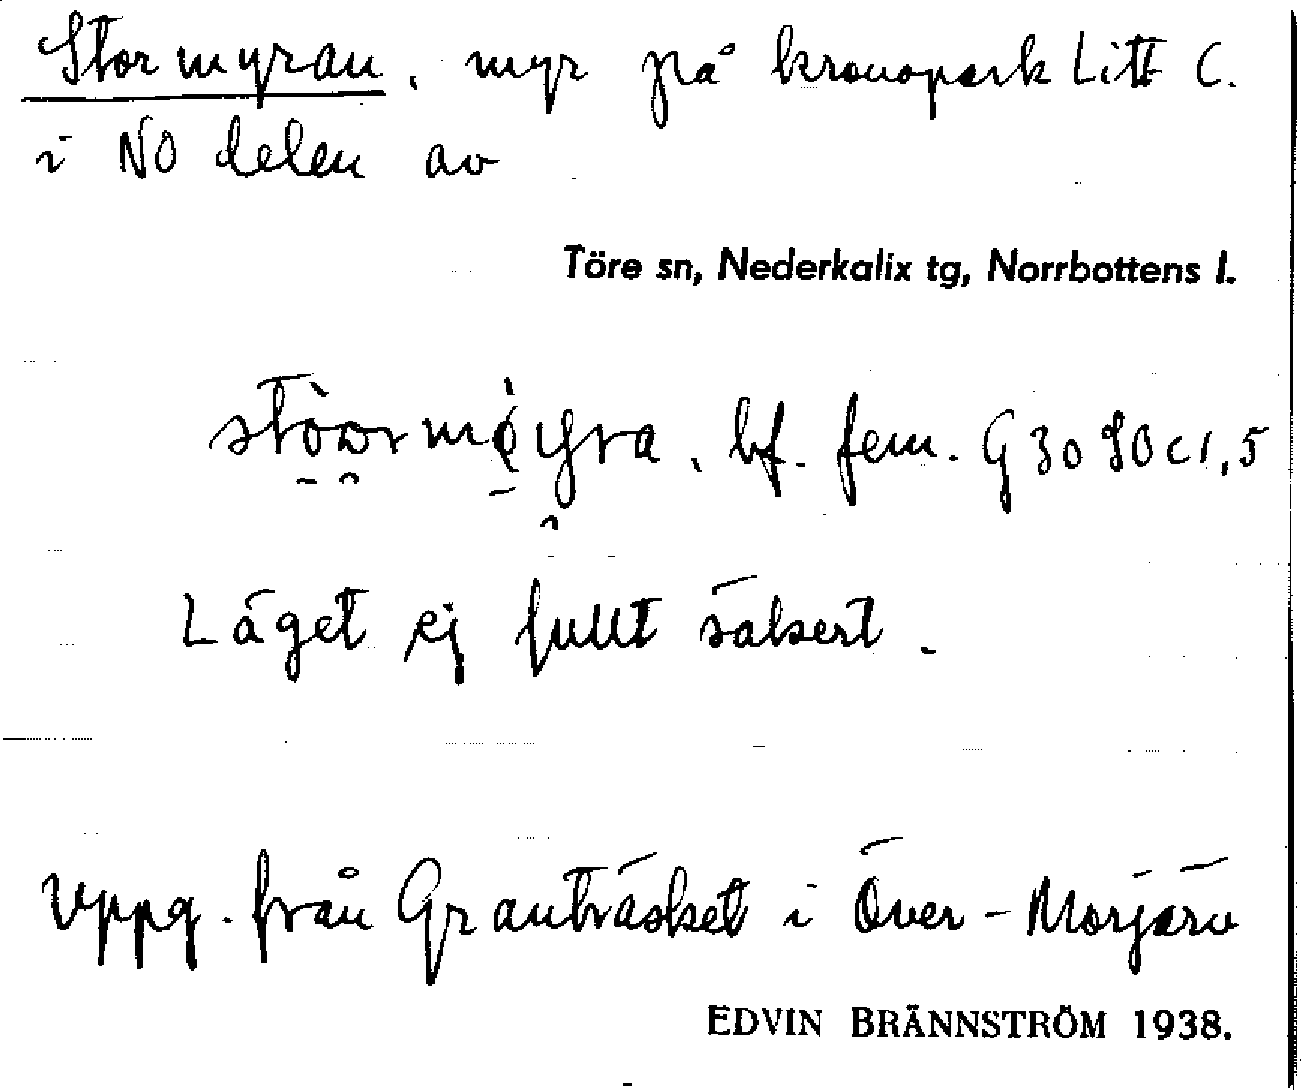 Stormyran, myr på kronopark Litt C.
i NO delen av
Töre sn, Nederkalix tg, Norrbottens l.
bf. fem. G 30 SO c1,5
Läget ej fullt säkert.
Uppg. från Granträsket i Över-Morjärv
EDVIN BRÄNNSTRÖM 1938.